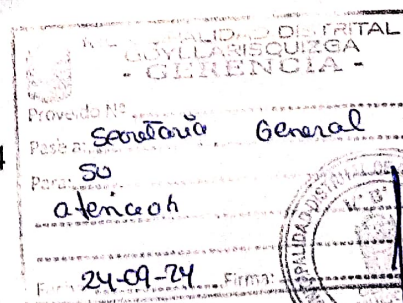 MUNICIPALIDAD DISTRITAL
GOYLLARISQUIZGA
- GERENCIA -
Proveido Nº
Pase a: Secretaría General
Para: su
atención
Fecha: 24-09-24 Firma: